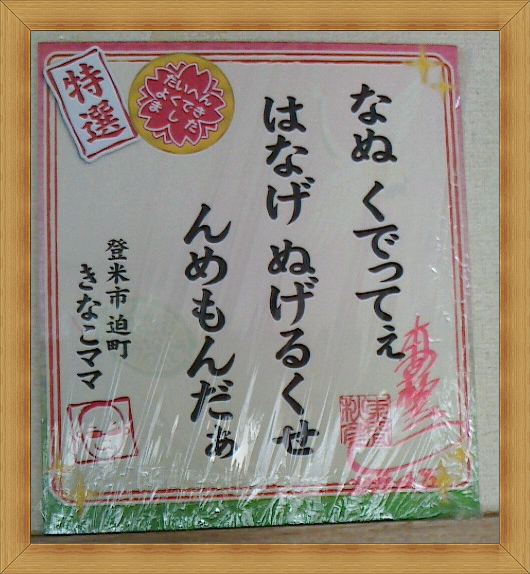 特選
だいへん
よくでき
ました
なぬ くでってぇ
はなげ ぬげるくせ
んめもんだぁ
登米市迫町
きなこママ